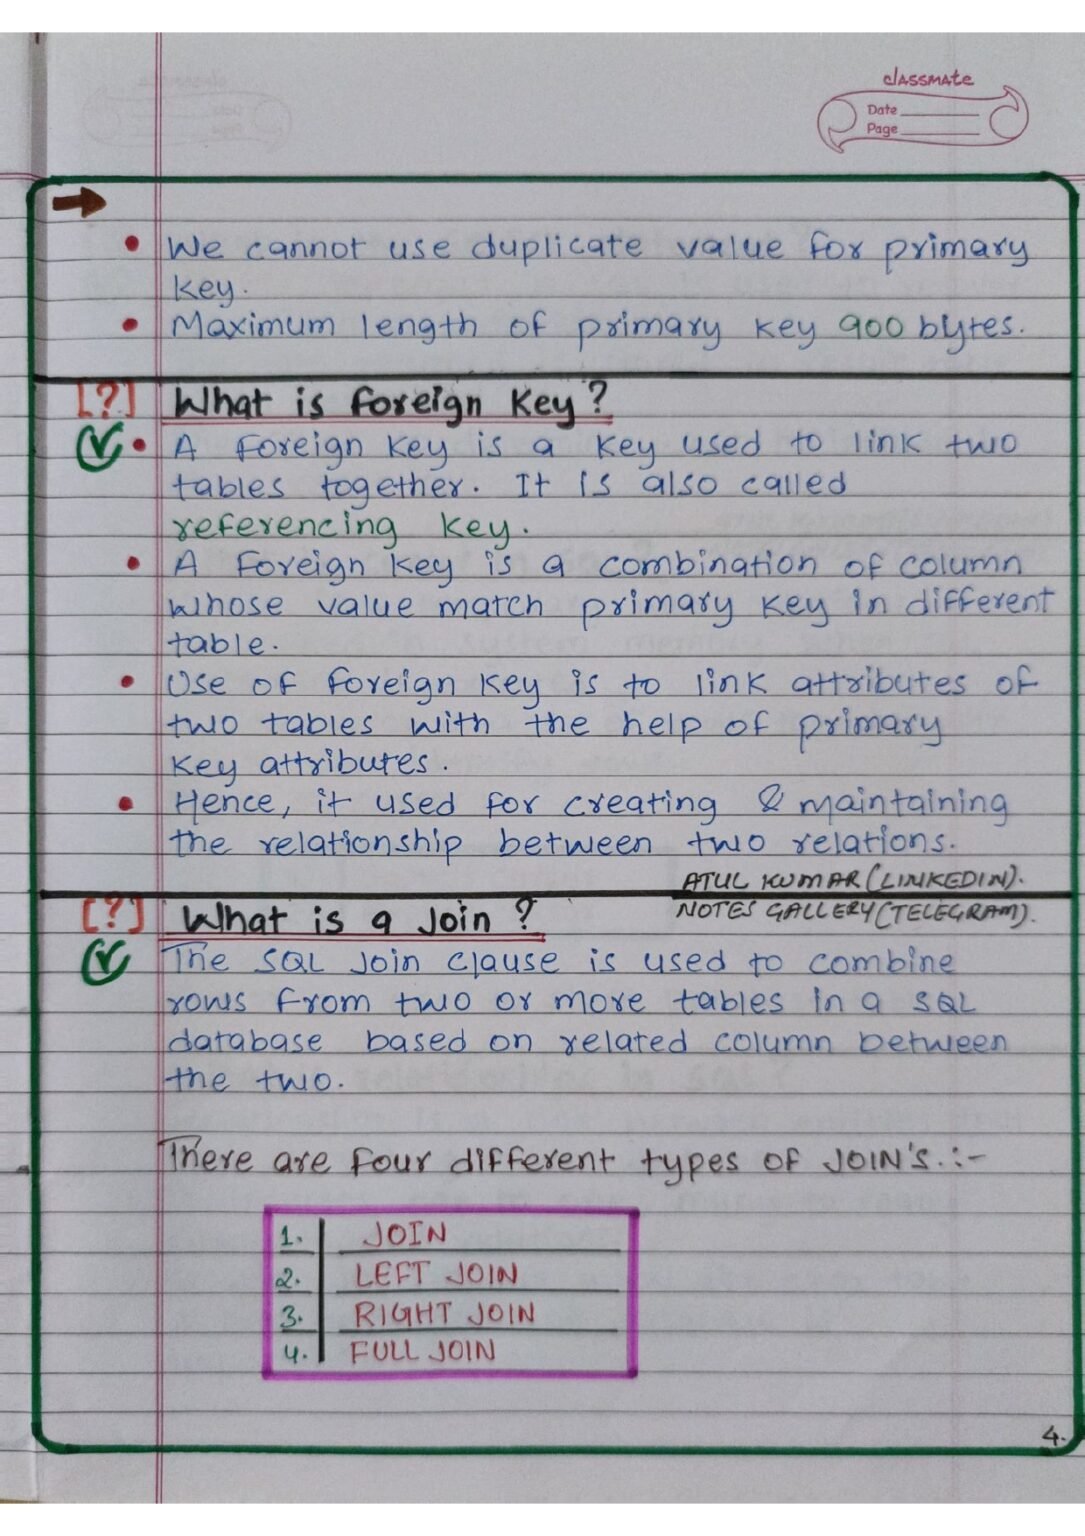 classmate
Date
Page
We cannot use duplicate value for primary
key.
Maximum length of primary key 900 bytes.
[?] What is Foreign Key?
A Foreign Key is a Key used to link two
tables together. It is also called
referencing Key.
A Foreign Key is a combination of column
whose value match primary key in different
table.
Use of foreign key is to link attributes of
two tables with the help of primary
Key attributes.
Hence, it used for creating & maintaining
the relationship between two relations.
ATUL KUMAR (LINKEDIN).
NOTES GALLERY (TELEGRAM).
[?] What is a Join ?
The SQL Join clause is used to combine
rows from two or more tables in a SQL
database based on related column between
the two.
There are four different types of JOIN'S.:-
1. JOIN
2. LEFT JOIN
3. RIGHT JOIN
4. FULL JOIN
4.